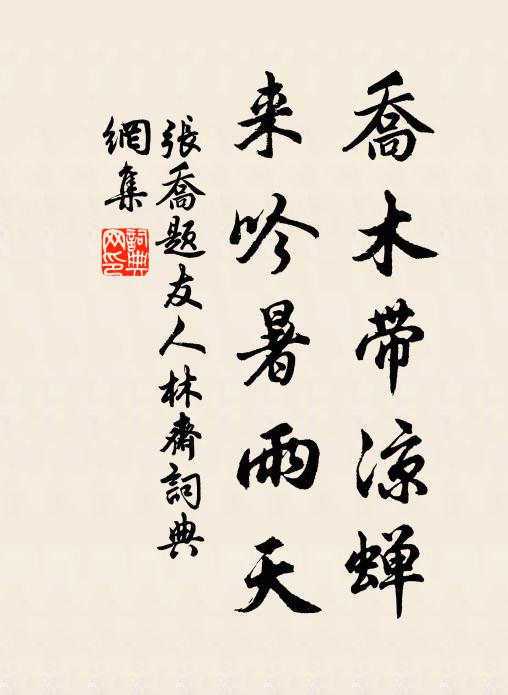 喬木带涼蝉
来吟暑雨天
張喬题友人林齋詞典
網集
詞典网印